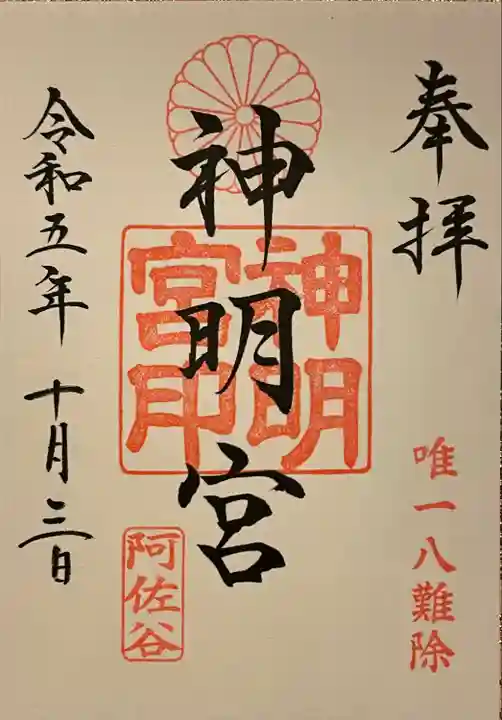 奉拝
唯一八難除
神明宮
神明宮印
阿佐谷
令和五年十月三日